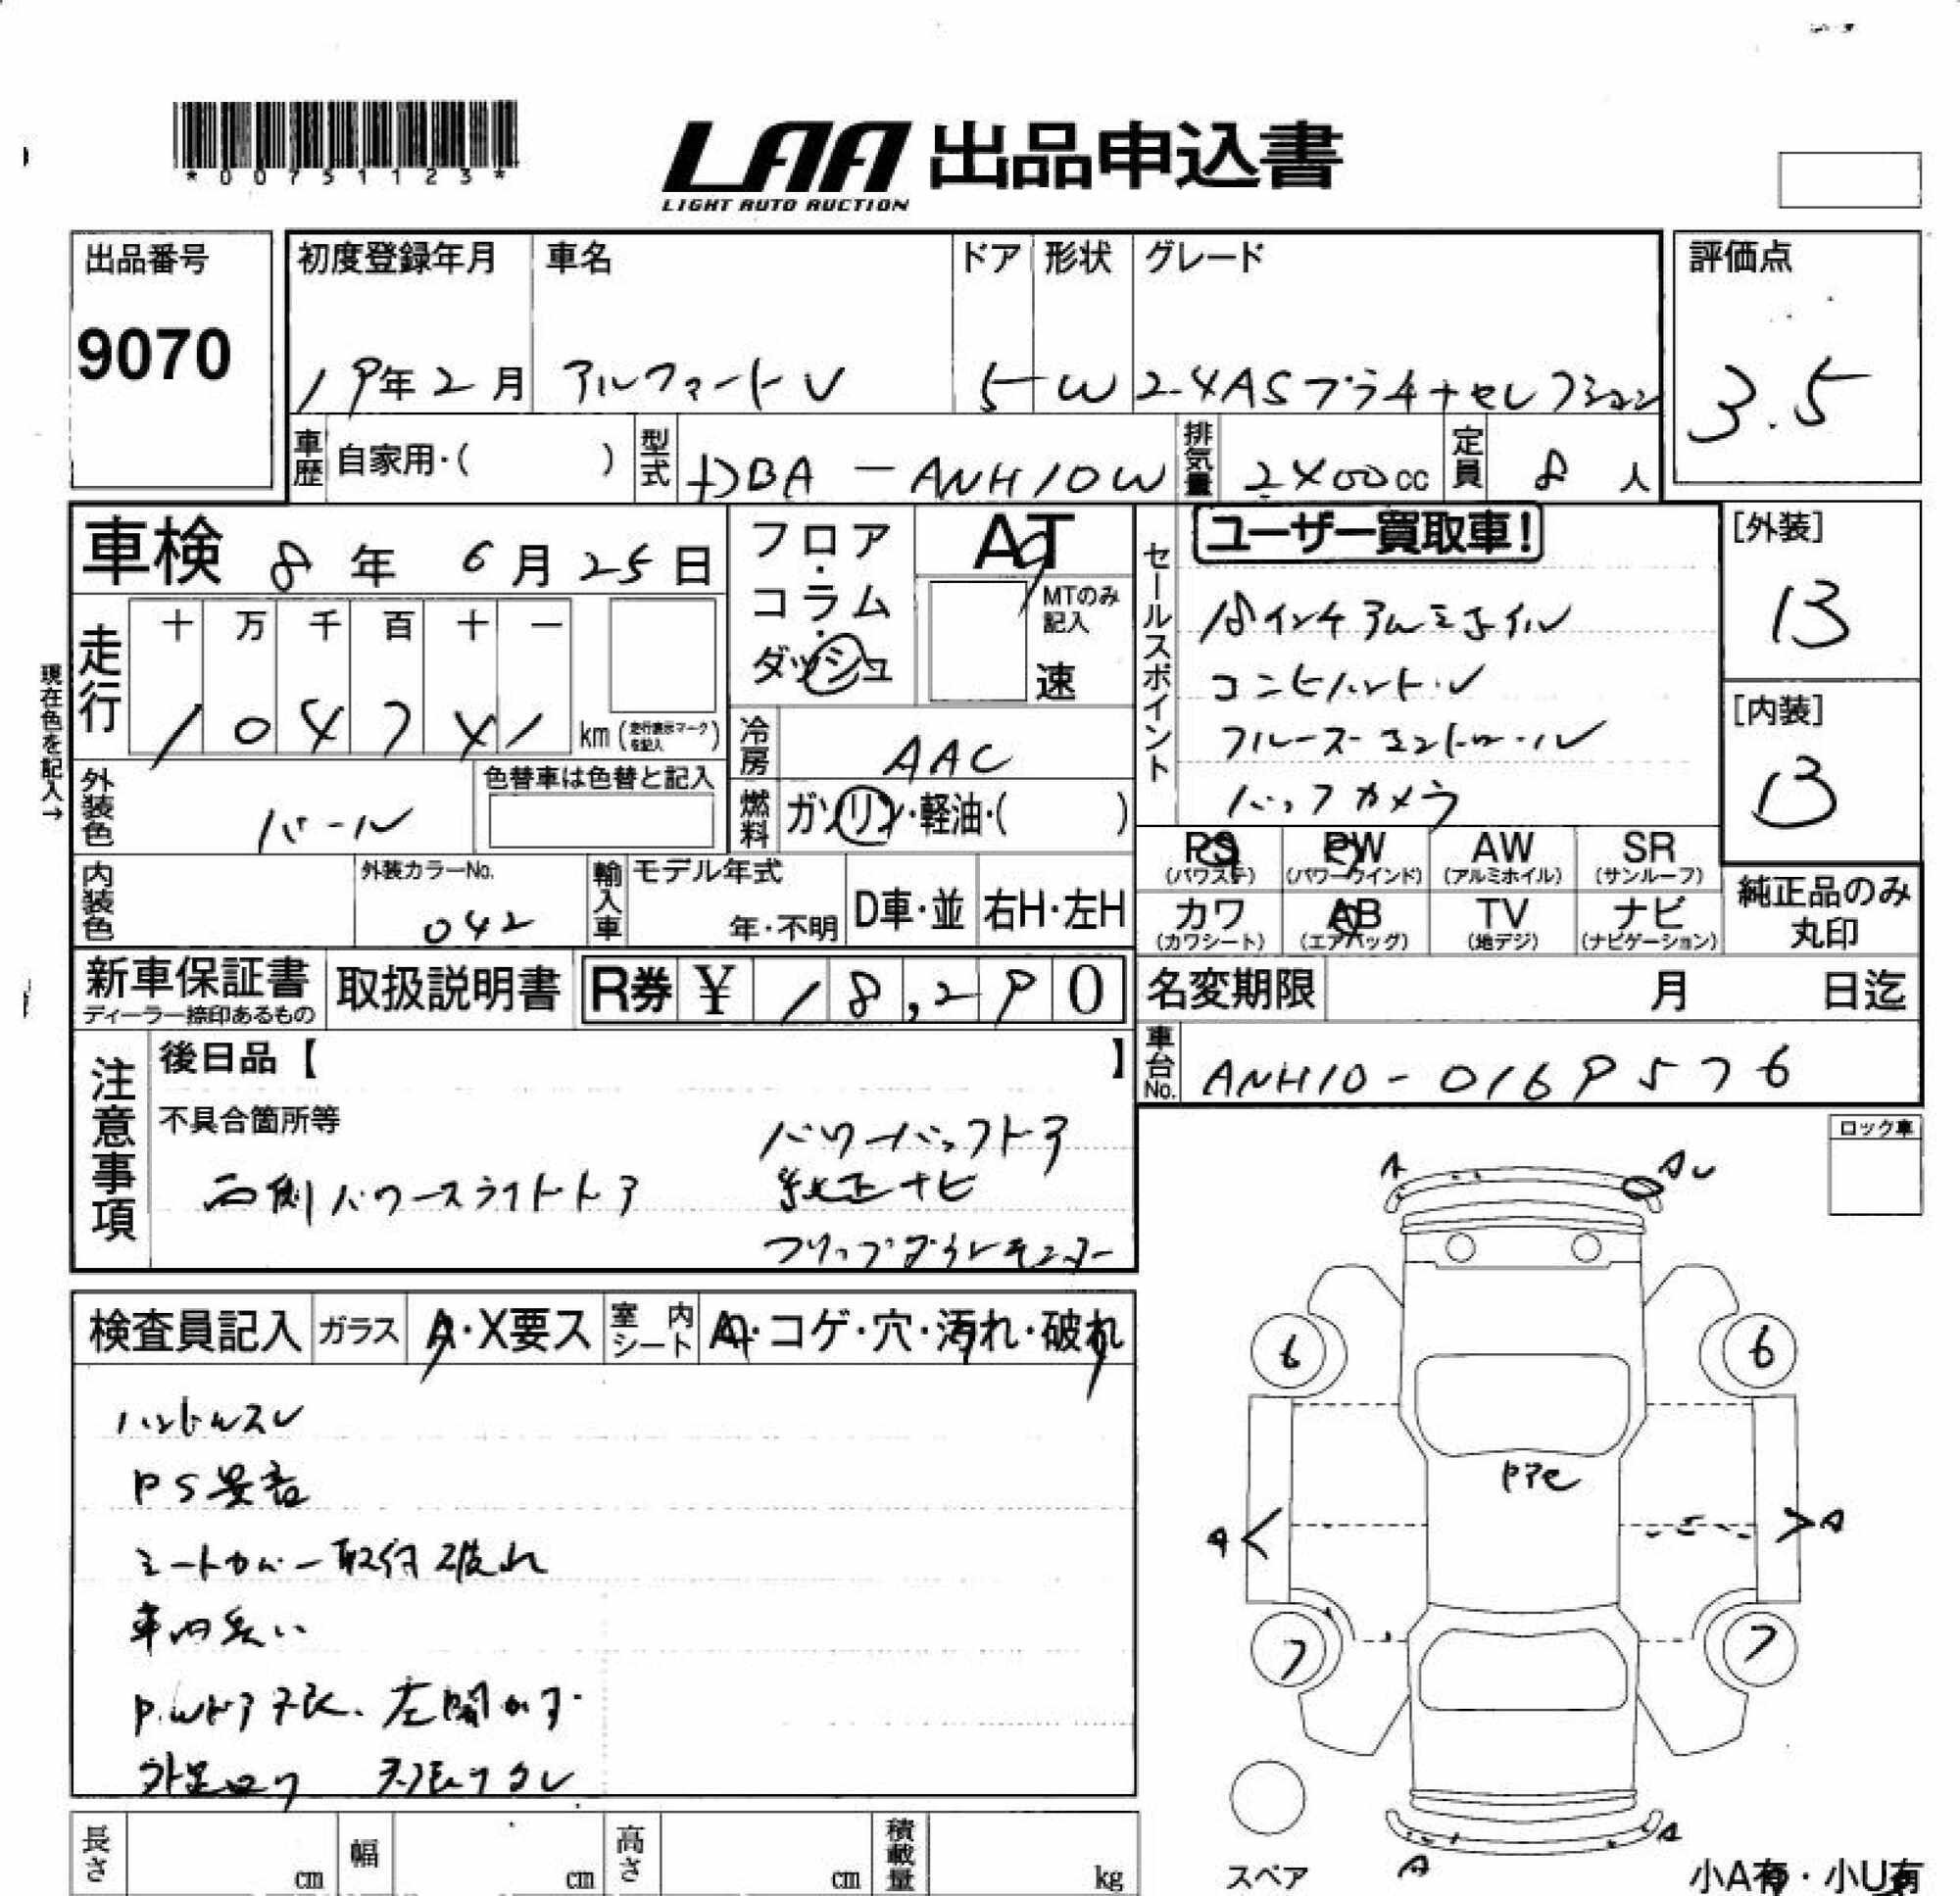 *00751123*
LAA 出品申込書
LIGHT AUTO AUCTION
出品番号
9070
初度登録年月
19年2月
車名
アルファードV
ドア
5
形状
W
グレード
2.4ASプラチナセレクション
評価点
3.5
車歴
自家用・( )
型式
DBA-ANH10W
排気量
2400cc
定員
8人
車検 8年 6月 25日
走行
十 万 千 百 十 一
1 0 4 7 4 1
km (走行表示マークを記入)
現在色を記入→
フロア・コラム・ダッシュ
AT
MTのみ記入
速
セールスポイント
ユーザー買取車!
18インチアルミホイル
コンビハンドル
クルーズコントロール
バックカメラ
[外装]
13
[内装]
13
冷房
AAC
燃料
ガソリン・軽油・( )
外装色
パール
色替車は色替と記入
内装色
外装カラーNo.
042
輸入車
モデル年式
年・不明
D車・並
右H・左H
PS
(パワステ)
PW
(パワーウインド)
AW
(アルミホイル)
SR
(サンルーフ)
カワ
(カワシート)
AB
(エアバッグ)
TV
(地デジ)
ナビ
(ナビゲーション)
純正品のみ
丸印
新車保証書
ディーラー捺印あるもの
取扱説明書
R券 ¥ 18,290
名変期限 月 日迄
車台No.
ANH10-0169576
注意事項
後日品【 】
不具合箇所等
パワーバックドア
両側パワースライドドア
純正ナビ
フリップダウンモニター
ロック車
検査員記入
ガラス
A・X要ス
室内シート
A・コゲ・穴・汚れ・破れ
ハンドルスレ
PS異音
シートカバー取付破れ
車内臭い
P.Wドア不良、左開かず
天張りタレ
A
AU
6
6
A
A
7
7
A
A
スペア
小A有・小U有
長さ cm
幅 cm
高さ cm
積載量 kg